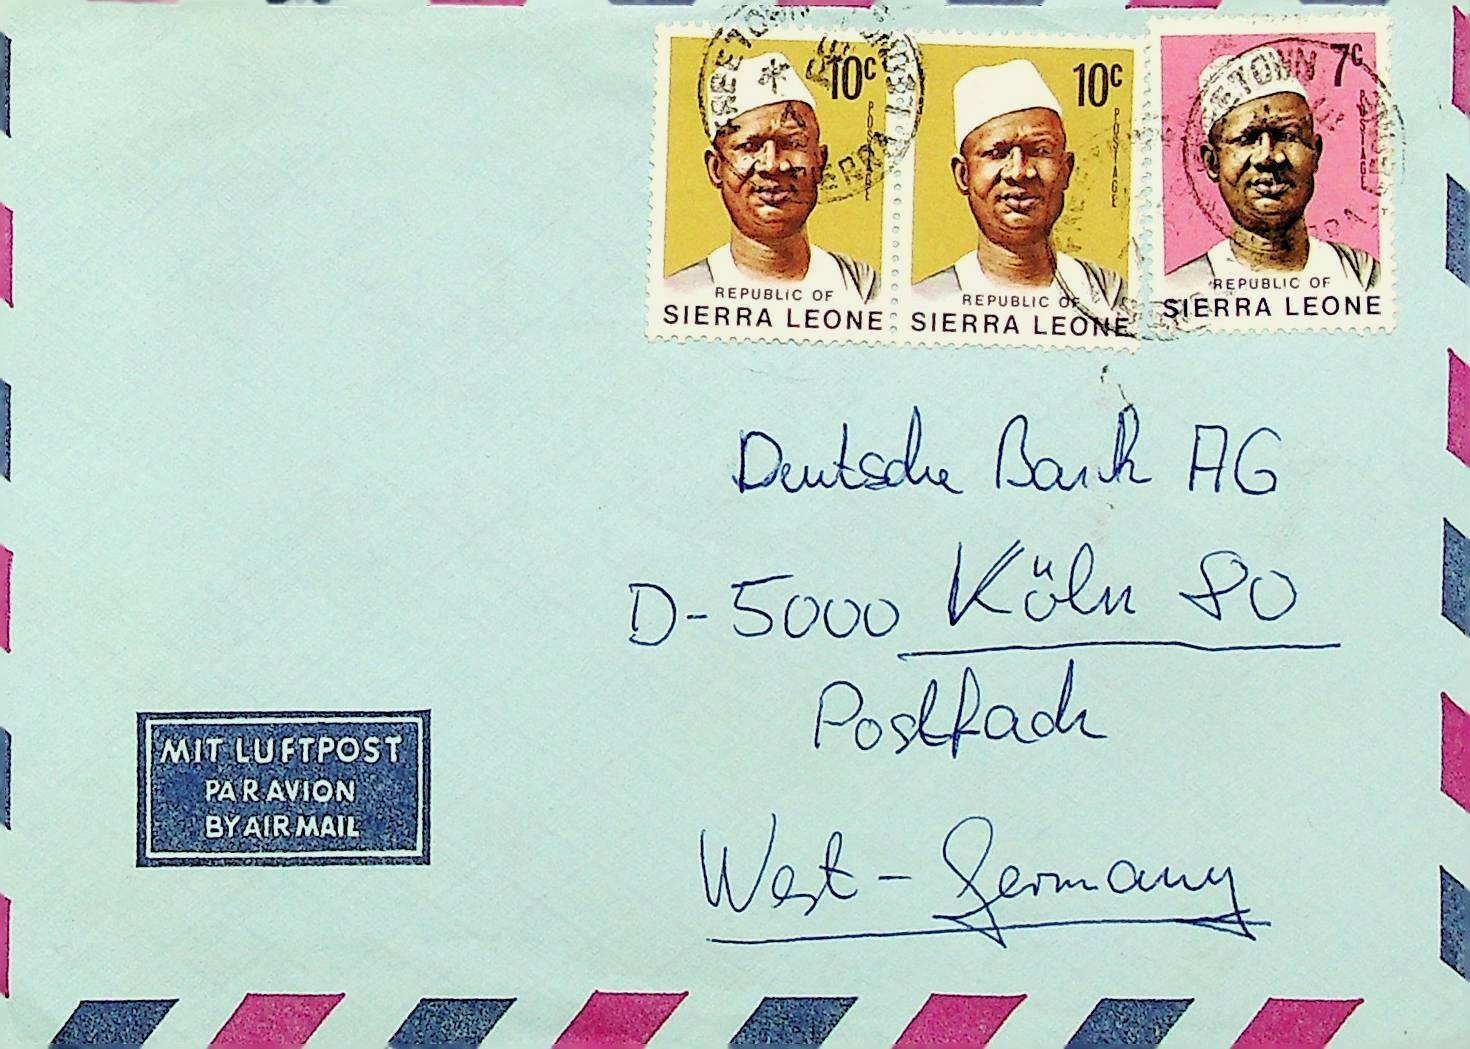 10c
POSTAGE
REPUBLIC OF
SIERRA LEONE
10c
POSTAGE
REPUBLIC OF
SIERRA LEONE
7c
POSTAGE
REPUBLIC OF
SIERRA LEONE
FREETOWN
SIERRA LEONE
FREETOWN
Deutsche Bank AG
D-5000 Köln 80
Postfach
West-Germany
MIT LUFTPOST
PAR AVION
BY AIR MAIL